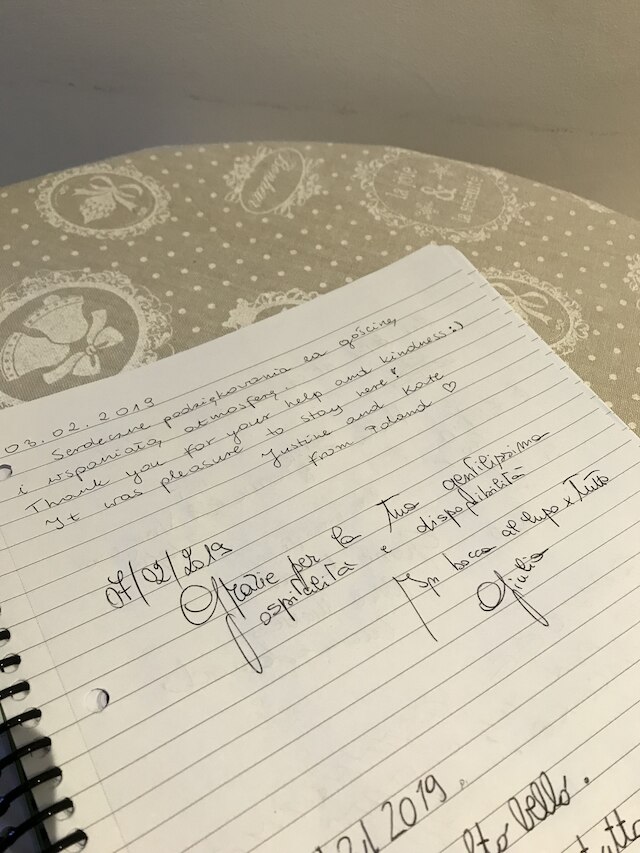 Bonheur
la vie
&
la beauté
03.02.2019
Serdeczne podziękowania za gościnę
i wspaniałą atmosferę.
Thank you for your help and kindness :)
It was pleasure to stay here!
Justine and Kate
from Poland ♡
7/02/2019
Grazie per la tua gentilissima
ospitalità e disponibilità
In bocca al lupo x tutto
Giulio
2019
bello.
tutto